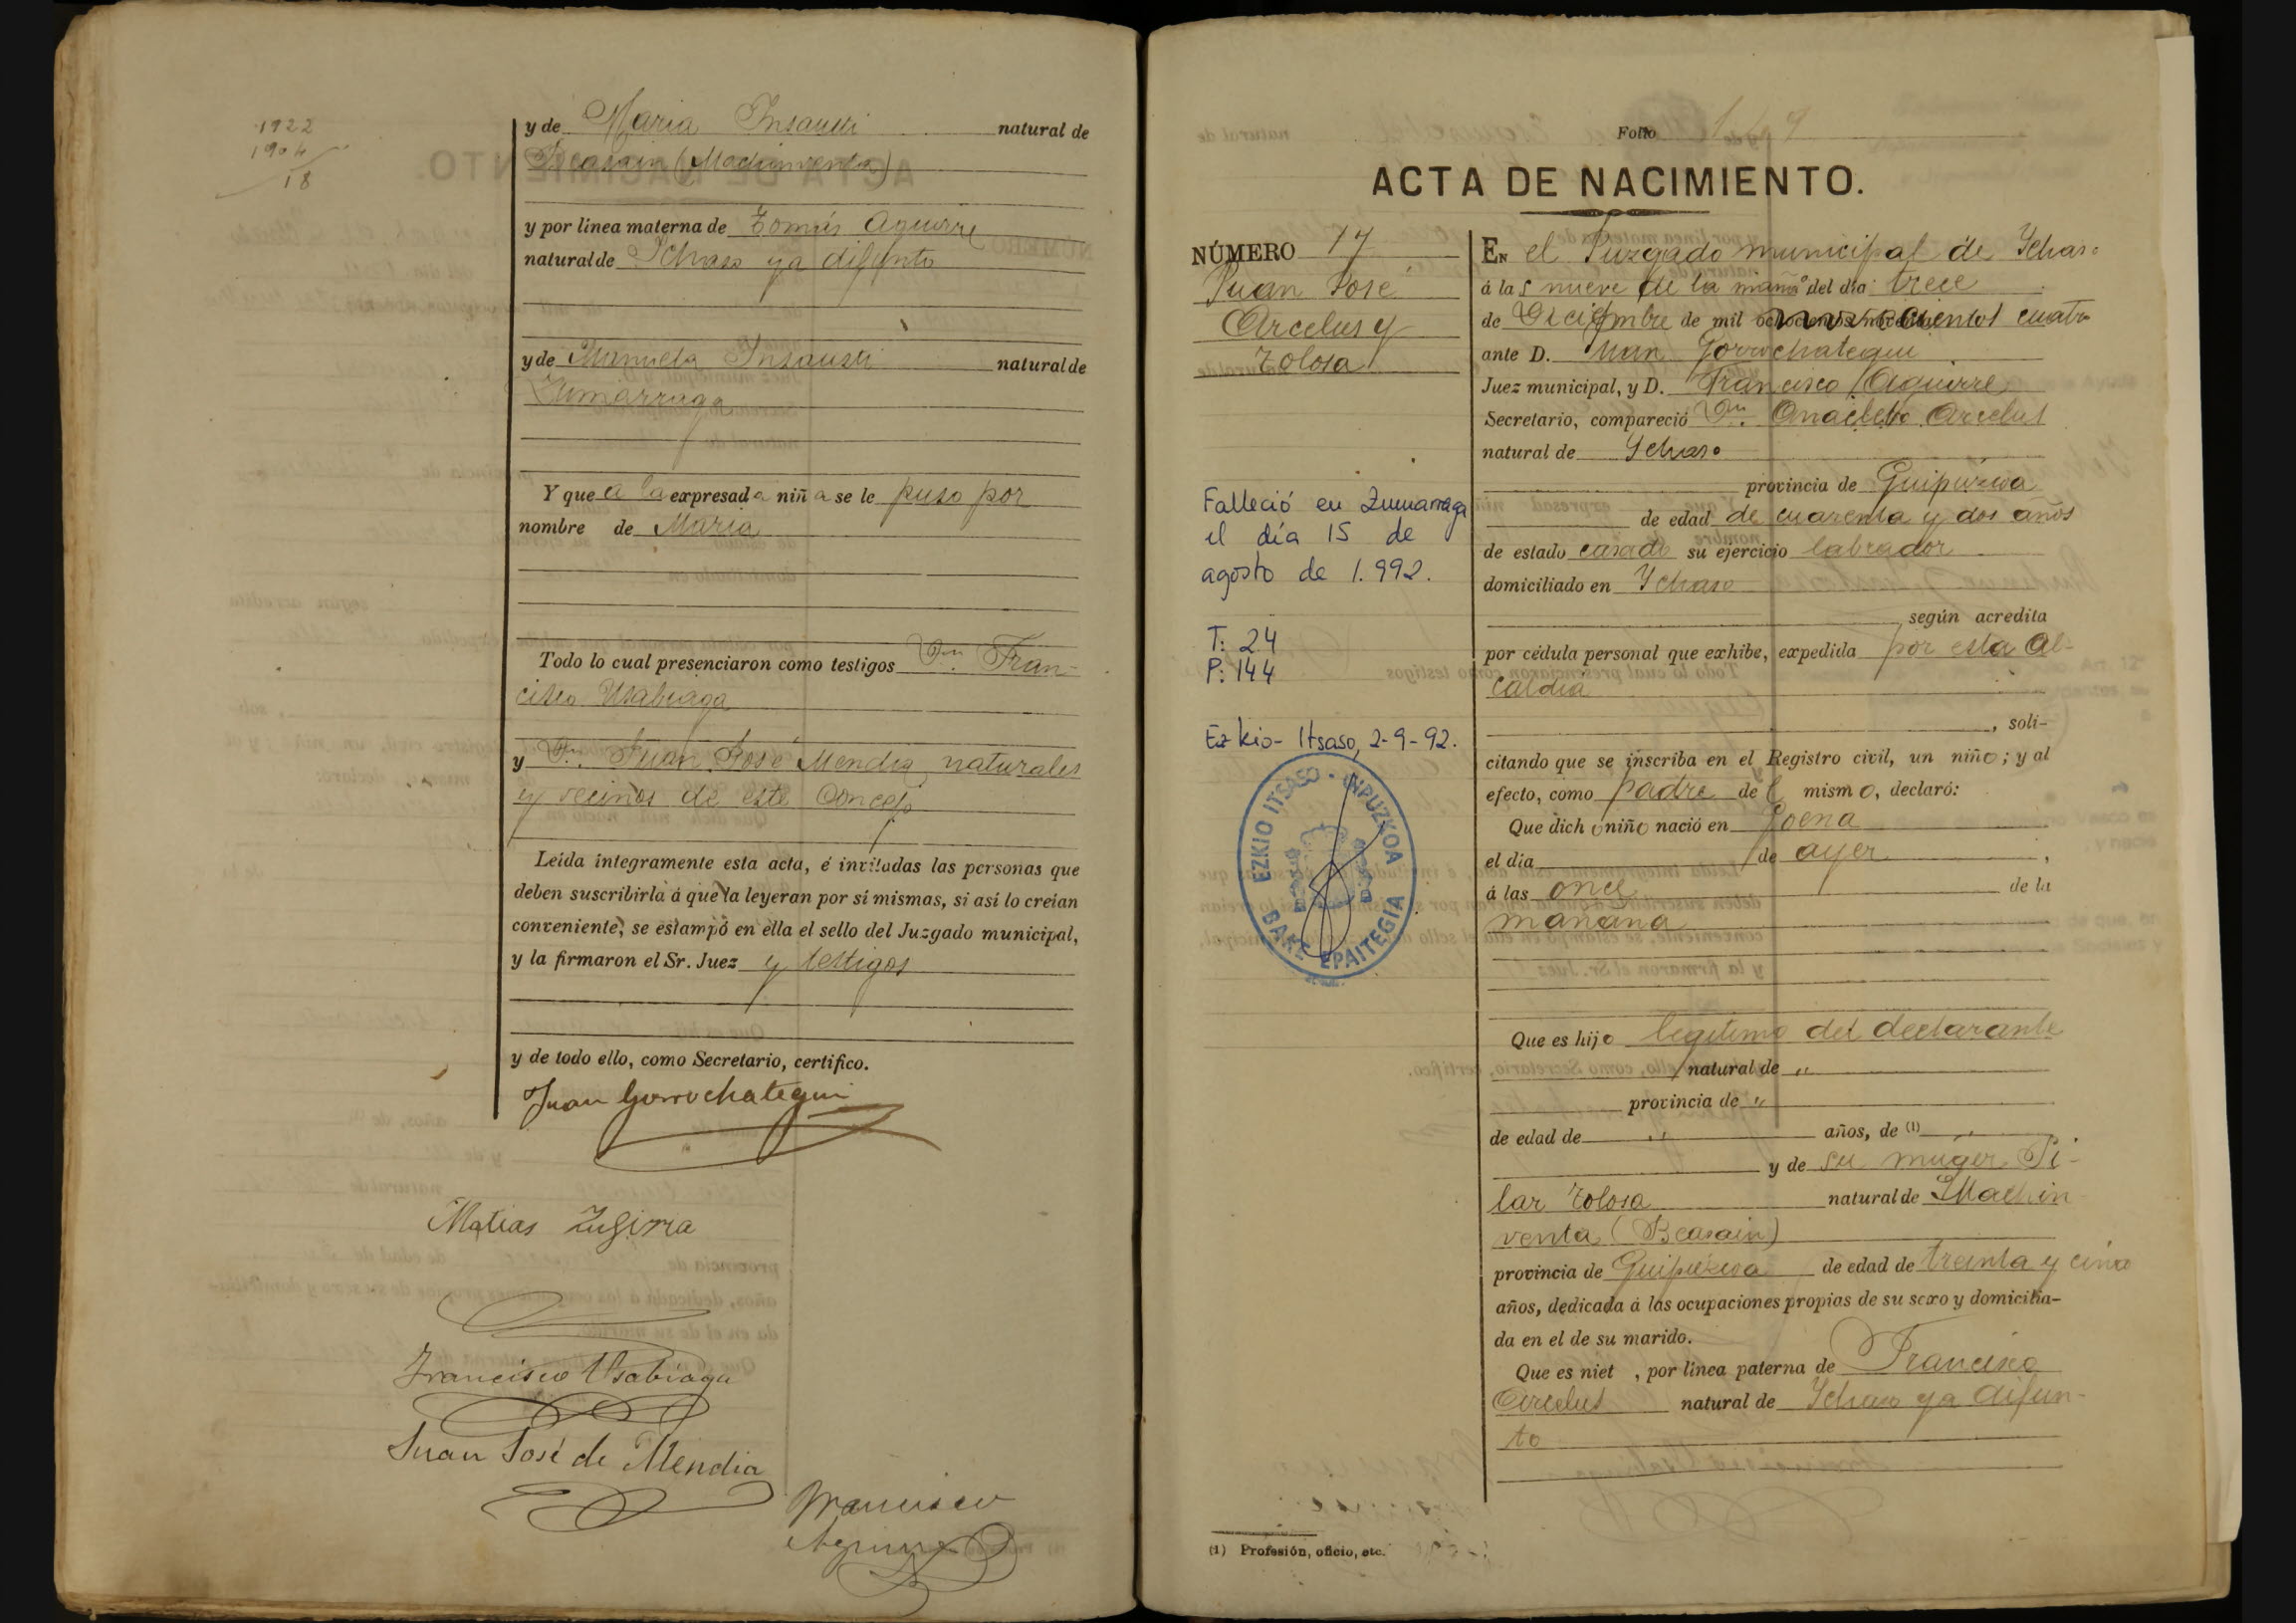 1922
1904
18
y de Maria Insausti natural de
Beasain (Machinventa)
y por línea materna de Tomás Aguirre
natural de Ichaso ya difunto
y de Manuela Insausti natural de
Zumarraga
Y que a la expresada niña se le puso por
nombre de Maria
Todo lo cual presenciaron como testigos Dn. Fran-
cisco Usabiaga
y Dn. Juan José Mendia, naturales
y vecinos de este Concejo
Leída íntegramente esta acta, é invitadas las personas que
deben suscribirla á que la leyeran por sí mismas, si así lo creían
conveniente, se estampó en ella el sello del Juzgado municipal,
y la firmaron el Sr. Juez y testigos
y de todo ello, como Secretario, certifico.
Juan Gorrochategui
Matias
Francisco Usabiaga
Juan José de Mendia
Francisco
Aguirre
Folio 19
ACTA DE NACIMIENTO.
NÚMERO 17
Juan José
Arcelus y
Tolosa
Falleció en Zumarraga
el día 15 de
agosto de 1.992.
T: 24
P: 144
Ezkio-Itsaso, 2-9-92.
EZKIO ITSASO - GIPUZKOA
BAKE EPAITEGIA
En el Juzgado municipal de Ichaso
á las nueve de la mañª del día trece
de Diciembre de mil novecientos cuatro
ante D. Juan Gorrochategui
Juez municipal, y D. Francisco Aguirre
Secretario, compareció Dn. Anacleto Arcelus
natural de Ichaso
provincia de Guipúzcoa
de edad de cuarenta y dos años
de estado casado su ejercicio labrador
domiciliado en Ichaso
según acredita
por cédula personal que exhibe, expedida por esta Al-
caldia
, soli-
citando que se inscriba en el Registro civil, un niño; y al
efecto, como padre del mismo, declaró:
Que dicho niño nació en Goena
el día de ayer ,
á las once de la
mañana
Que es hijo legitimo del declarante
natural de "
provincia de "
de edad de " años, de (1) "
y de su muger Pi-
lar Tolosa natural de Machin-
venta (Beasain)
provincia de Guipúzcoa de edad de treinta y cinco
años, dedicada á las ocupaciones propias de su sexo y domicilia-
da en el de su marido.
Que es niet , por línea paterna de Francisco
Arcelus natural de Ichaso ya difun-
to
(1) Profesión, oficio, etc.